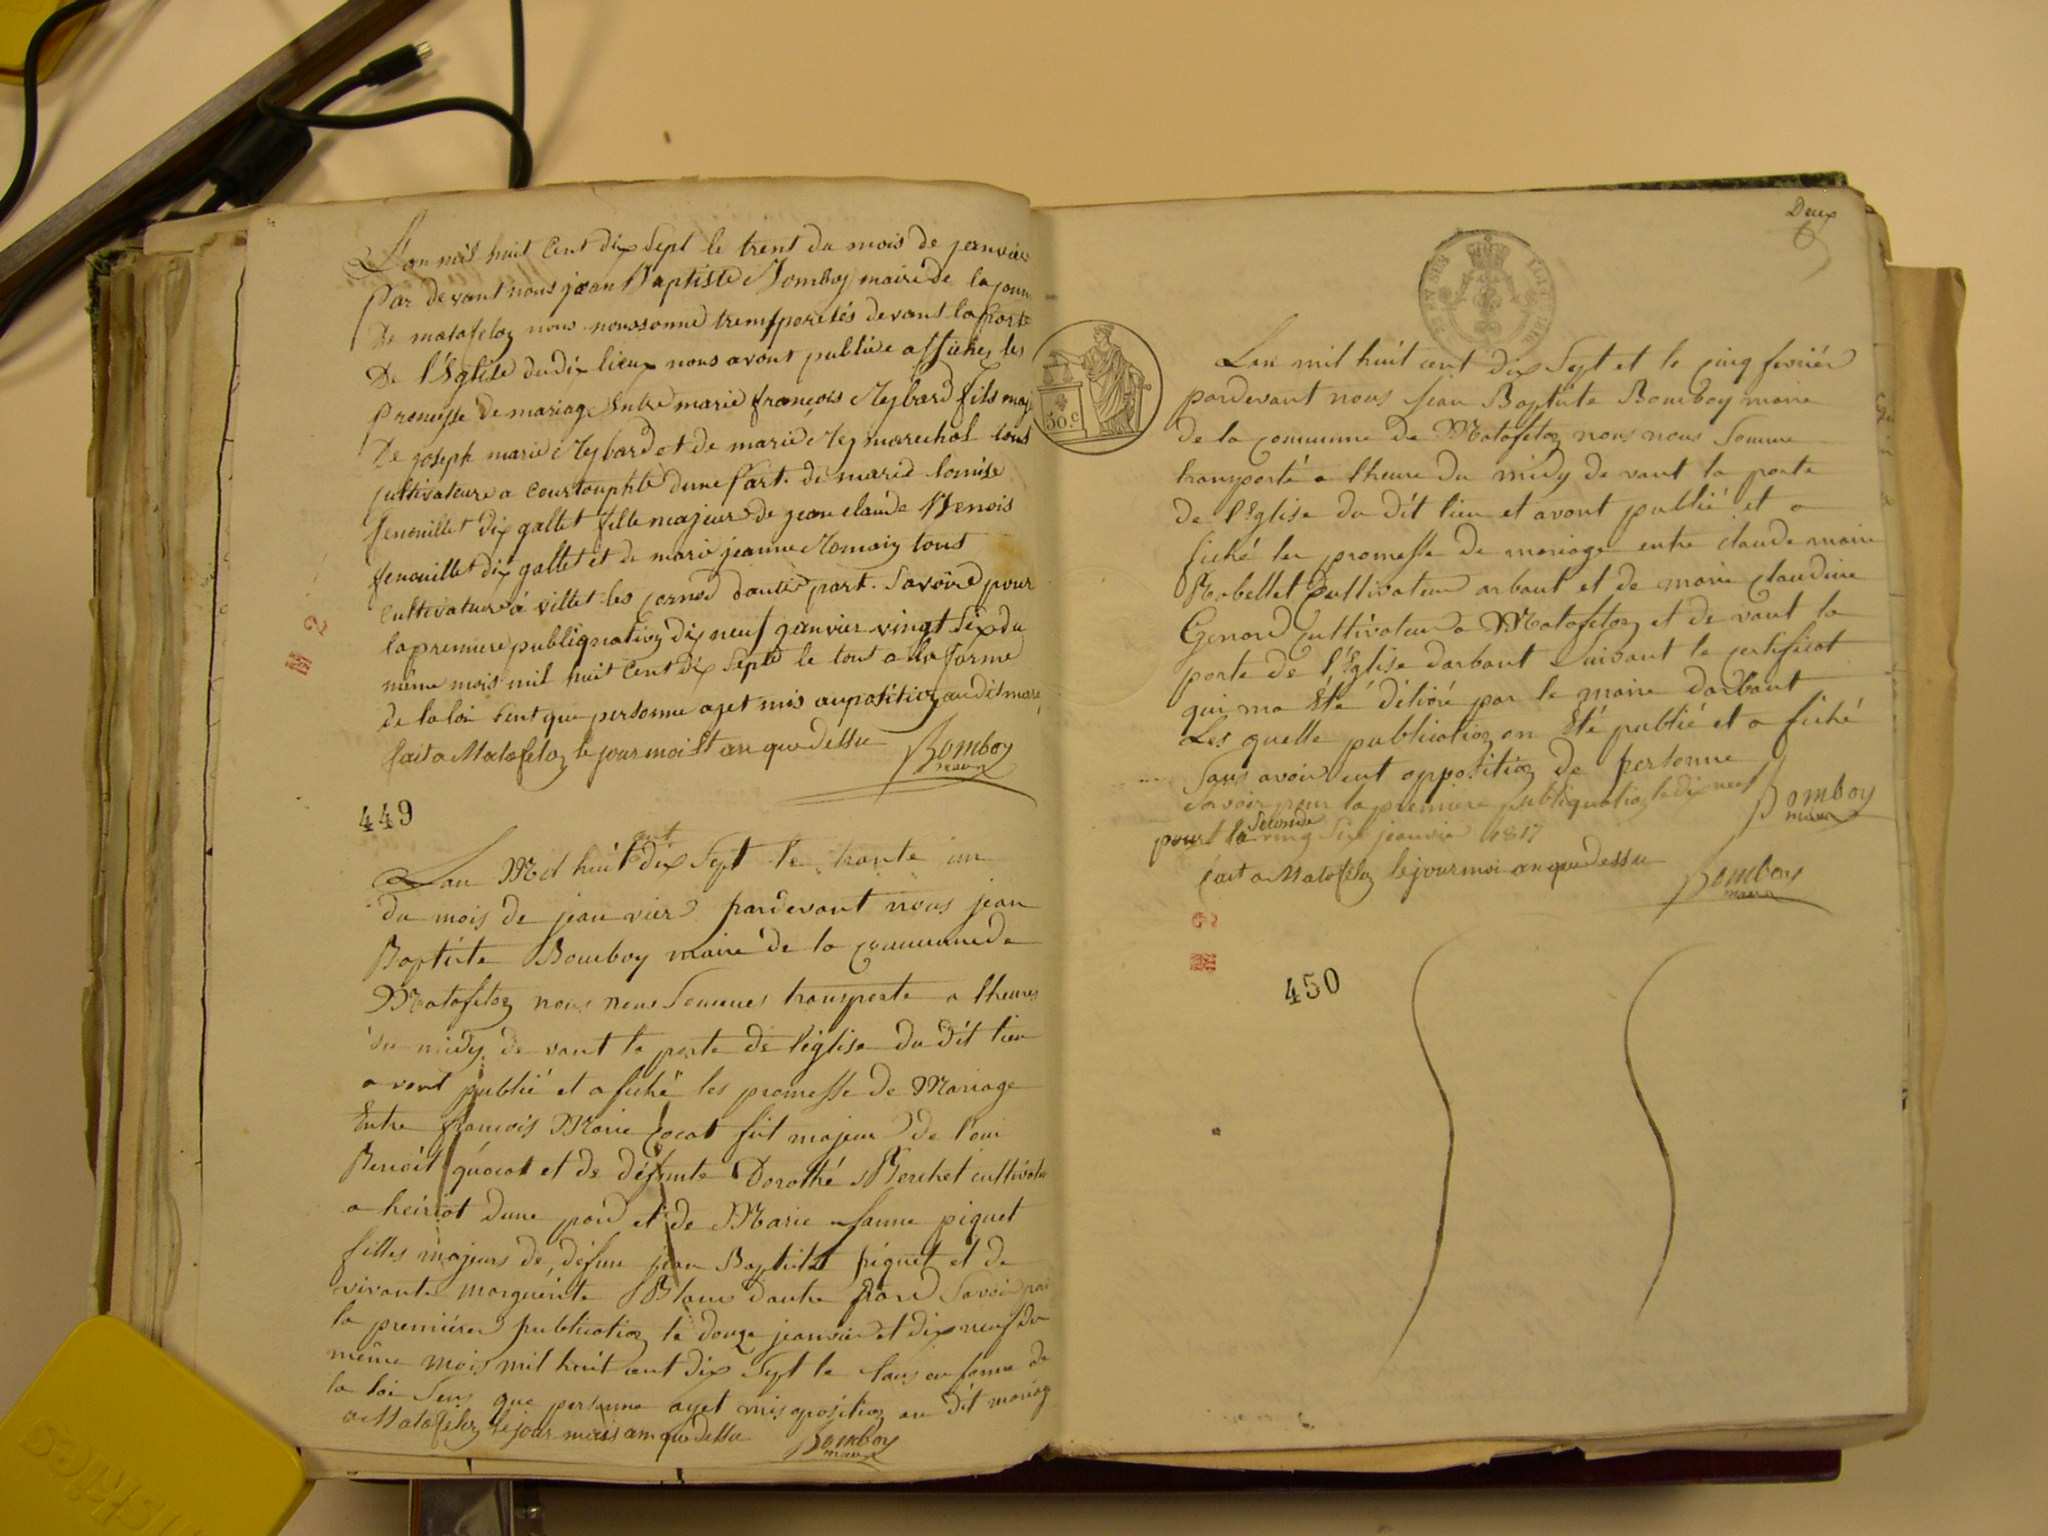 L'an mil huit Cent dix Sept le trent du mois de janvier
Par devant nous jean Baptiste Bomboy maire de la Com
De matafelon nous noussomme tremsporetés devant la porte
De l'Eglise dudix lieux nous avont publiée affichez les
Promesse de mariage Entre marie françois Reybard fils maj
De joseph marie Reybard et de marie Rey marechal tous
cultivateure a Courtouphle dune Part. de marie louise
fenouillet dix gallet fille majeur de jean claude Benois
fenouillet dix gallet et de marie jeanne Romain tous
Cultivature à villet les cornod dautre part. Savoire pour
la premiere publiquation dix neuf janvier vingt Six du
même mois mil huit Cent dix Septe le tout a la forme
de la loi Sent que personne ayet mis auposition audit mare
fait a Matafelon le jour moi Et an que dessu Bomboy
maire
449
Lan Mil huit cent dix Sept le trante un
du mois de jeanvier pardevant nous jean
Baptiste Bomboy maire de la Commune de
Matafelon nous nous Sommes transporte a lheures
du midy de vant la porte de l'église du dit lieu
avont publié et afiché les promesse de Mariage
Entre françois Marie Cocat fils majeur de
Benoit quocat et de défunte Dorothé Berchet cultivate
a heiriat dune pard et de Marie Janne piquet
filles majeurs de défun jean Baptiste piquet et de
vivante marguerite Blanc dautre pard Savoir pour
la premiere publication le douze jeanvier et dix neuf du
même mois mil huit cent dix Sept le tous en forme de
la loi Sens que personne ayet mis oposition au dit mariag
a Matafelon le jour mois an que dessu Bomboy
maire
Deux
50.c
Lan mil huit cent dix Sept et le cinq fevrier
pardevant nous Jean Baptiste Bomboy maire
de la Commune de Matafelon nous nous Somme
transporté a lheure du midy de vant la porte
de l'Eglise du dit lieu et avont publié et a
fiché les promesse de mariage entre claude marie
Robellet Cultivateur arbant et de marie Claudine
Genord Cultivateur a Matafelon et de vant la
porte de l'Eglise darbant Suivant le certificat
qui ma Été délivré par le maire darbant
Les quelle publication on Été publié et a fiché
Sans avoir eut opposition de personne
Savoir pour la premiere publiquation le dix neuf Bomboy
maire
pour la Seconde ving Six jeanvie 1817
fait a Matafelon le jour moi an que dessu Bomboy
maire
450